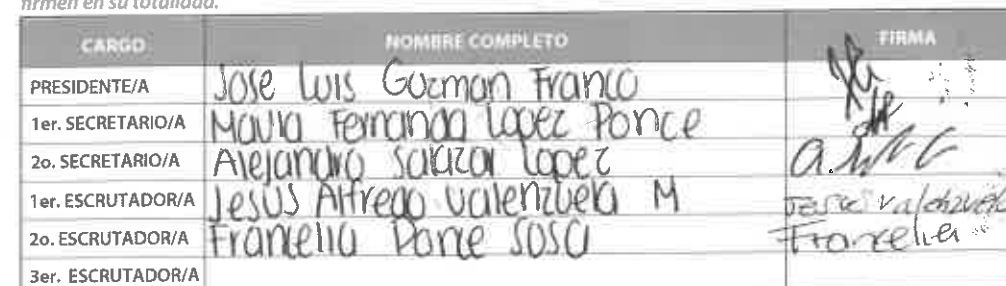 firmen en su totalidad.
CARGO NOMBRE COMPLETO FIRMA
PRESIDENTE/A Jose Luis Guzman Franco
1er. SECRETARIO/A Maria Fernanda Lopez Ponce
2o. SECRETARIO/A Alejandro Salazar Lopez
1er. ESCRUTADOR/A Jesus Alfredo Valenzuela M Jesus Valenzuela
2o. ESCRUTADOR/A Francelia Ponce Sosa Francelia
3er. ESCRUTADOR/A